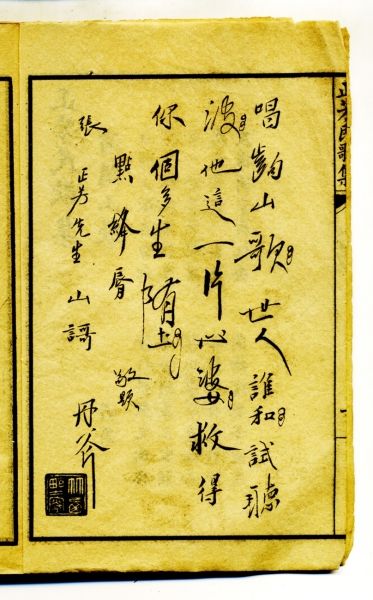 正芳民歌集
唱齣山歌世人誰和試聽
波他這一片心婆救得
你個多生墮
點絳脣 敬題
張正芳先生山謌 丹斧